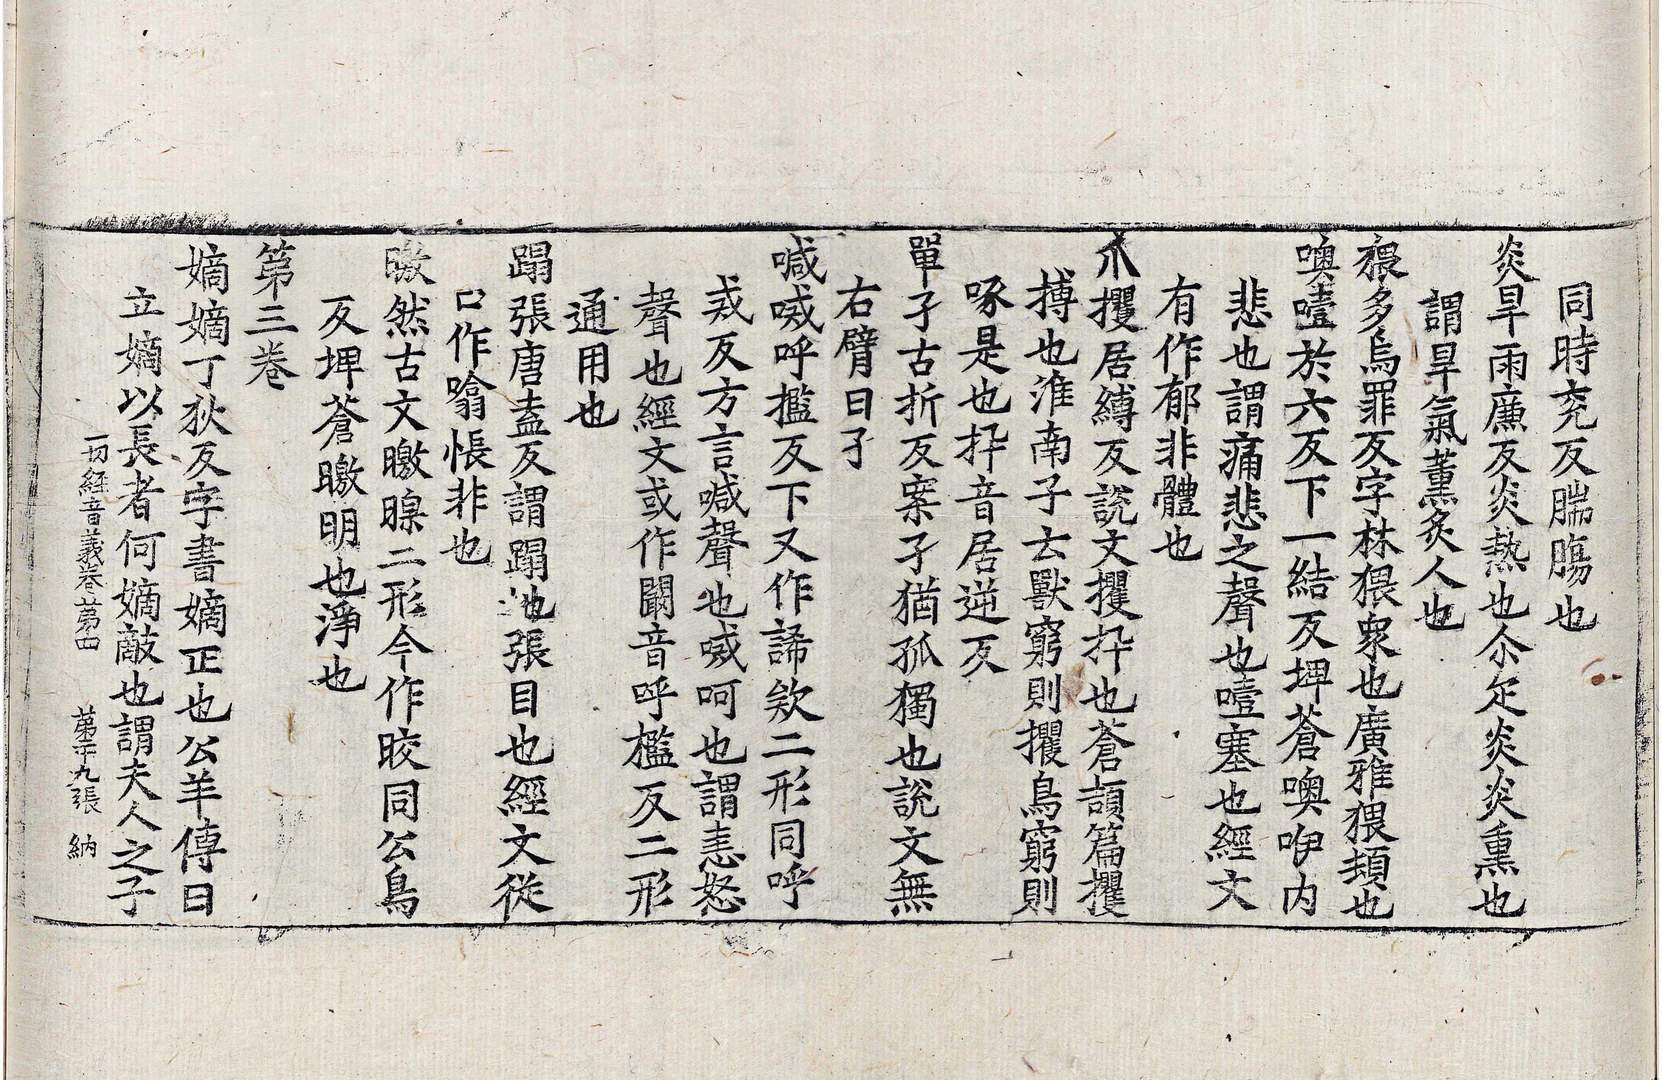 同時兖反腨膓也
炎旱雨廉反炎熱也尒疋炎炎熏也
謂旱氣薫炙人也
猥多烏罪反字林猥衆也廣雅猥頻也
噢噎於六反下一結反埤蒼噢咿内
悲也謂痛悲之聲也噎塞也經文
有作郁非體也
爪攫居縛反說文攫扞也蒼頡篇攫
搏也淮南子云獸窮則攫鳥窮則
啄是也扞音居逆反
單孑古折反案孑猶孤獨也說文無
右臂曰孑
喊喊呼檻反下又作諦欸二形同呼
戒反方言喊聲也喊呵也謂恚怒
聲也經文或作闞音呼檻反二形
通用也
蹋張唐盍反謂蹋地張目也經文從
口作噏悵非也
皦然古文曒㬠二形今作晈同公鳥
反埤蒼曒明也淨也
第三卷
嫡嫡丁狄反字書嫡正也公羊傳曰
立嫡以長者何嫡敵也謂夫人之子
一切經音義卷第四 第十九張 納